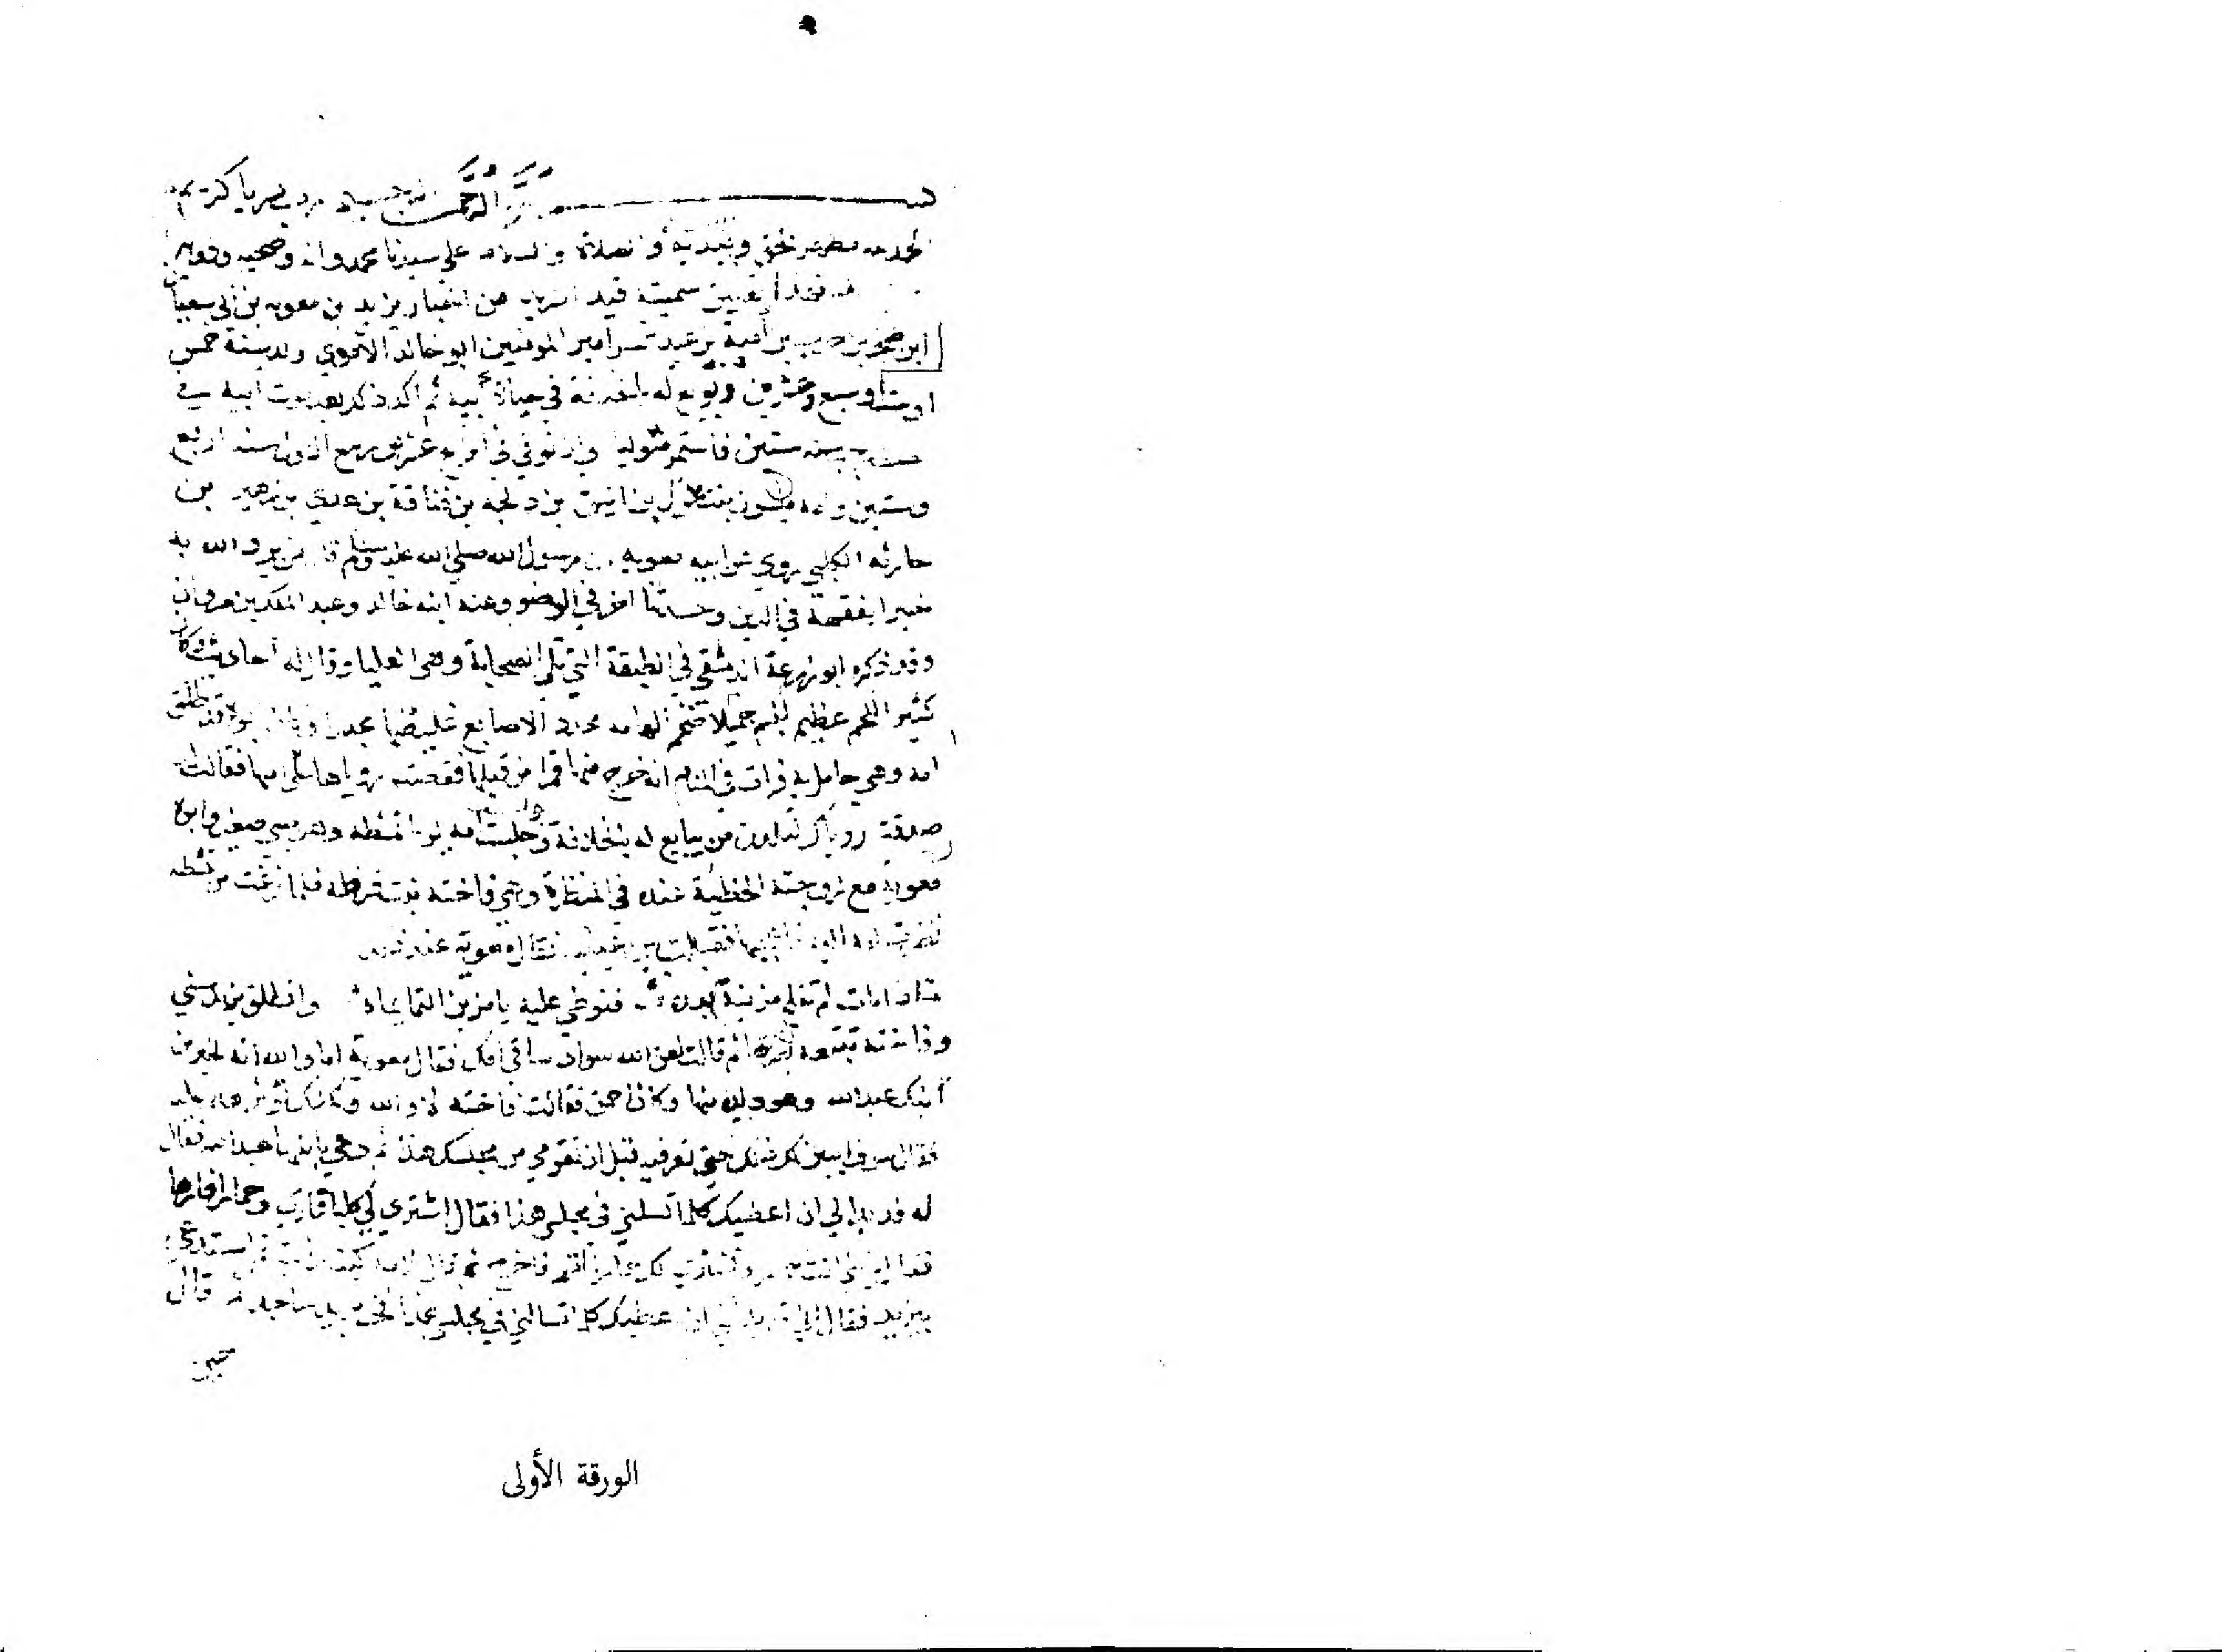 بسم الله الرحمن الرحيم رب يسر يا كريم
الحمد لله مظهر الحق ومبديه والصلاة والسلام على سيدنا محمد واله وصحبه وذويه
فهذا تعيين سميته قيد الشريد من اخبار يزيد بن معوية بن ابي سفيان
ابن صخر بن حرب بن أمية بن عبد شمس امير المومنين ابو خالد الأموي ولد سنة خمس
او ست او سبع وعشرين وبويع له بالخلافة في حياة أبيه ثم اكد ذلك بعد موت ابيه في
رجب سنة ستين فاستمر متوليا الى ان توفي في رابع عشر ربيع الاول سنة اربع
وستين وامه ميسون بنت بحدل بن انيف بن دلجه بن قنافة بن عدي بن زهير بن
حارثه الكلبي روي عن ابيه معوية ان رسول الله صلى الله عليه وسلم قال من يرد الله به
خيرا يفقهه في الدين وحديثا اخر في الوضو وعنه ابنه خالد وعبد الملك بن مروان
وقد ذكره ابو زرعة الدمشقي في الطبقة التي تلي الصحابة وهي العليا وقال له أحاديث وكان
كثير اللحم عظيم الجسم جميلا ضخم الهامه محدد الاصابع غليظها مجدرا وكان ابوه قد طلق
امه وهي حامل به فرات في المنام انه خرج منها قمر من قبلها فقصت روياها على امها فقالت
صدقت روياك لتلدن من يبايع له بالخلافة وجلست امه يوما تمشطه وهو صبي صغير وابوه
معوية مع زوجته الحظية عنده في المنظرة وهي فاخته بنت قرظه فلما فرغت من مشطه
نظرت امه اليه فقبلت بين عينيه فقال معوية عند ذلك
اذا مات لم تفلح مزينة بعده فنوطي عليه يا مزين التمايما وانطلق يزيد يمشي
وفاخته تتبعه بصرها ثم قالت لعن الله سواد ساقي امك فقال معوية اما والله انه لخير من
ابنك عبد الله وهو ولده منها وكان احمق فقالت فاخته لا والله ولكنك تؤثر هذا عليه
فقال سوف ابين لك ذلك حتى تعرفيه قبل ان تقومي من مجلسك هذا ثم دعي بابنها عبد الله فقال
له قد بدا لي ان اعطيك كلما تسلني في مجلسي هذا فقال اشتري لي كلبا فارها وحمارا فارها
فقال يا بني انت حمار ونشتري لك حمارا قم فاخرج ثم قال لامه كيف رايت ثم استدعى
بيزيد فقال اني قد بدا لي ان اعطيك كلما تسالني في مجلسي هذا فخر يزيد ساجدا ثم قال
حين
الورقة الأولى